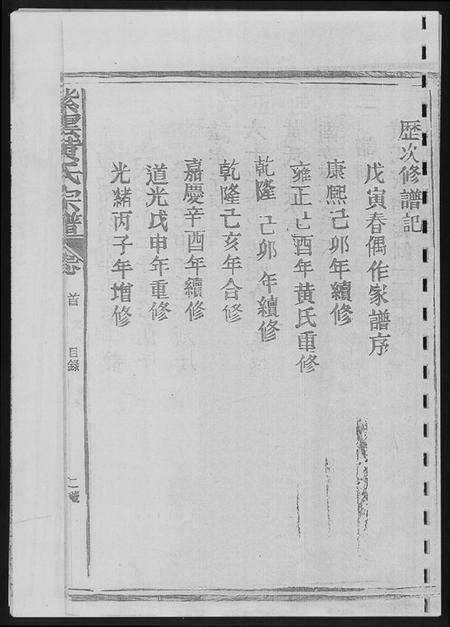 歷次修譜記
戊寅春偶作家譜序
康熙己卯年續修
雍正己酉年黃氏重修
乾隆己卯年續修
乾隆己亥年合修
嘉慶辛酉年續修
道光戊申年重修
光緒丙子年增修
紫雲黃氏宗譜
首
目錄